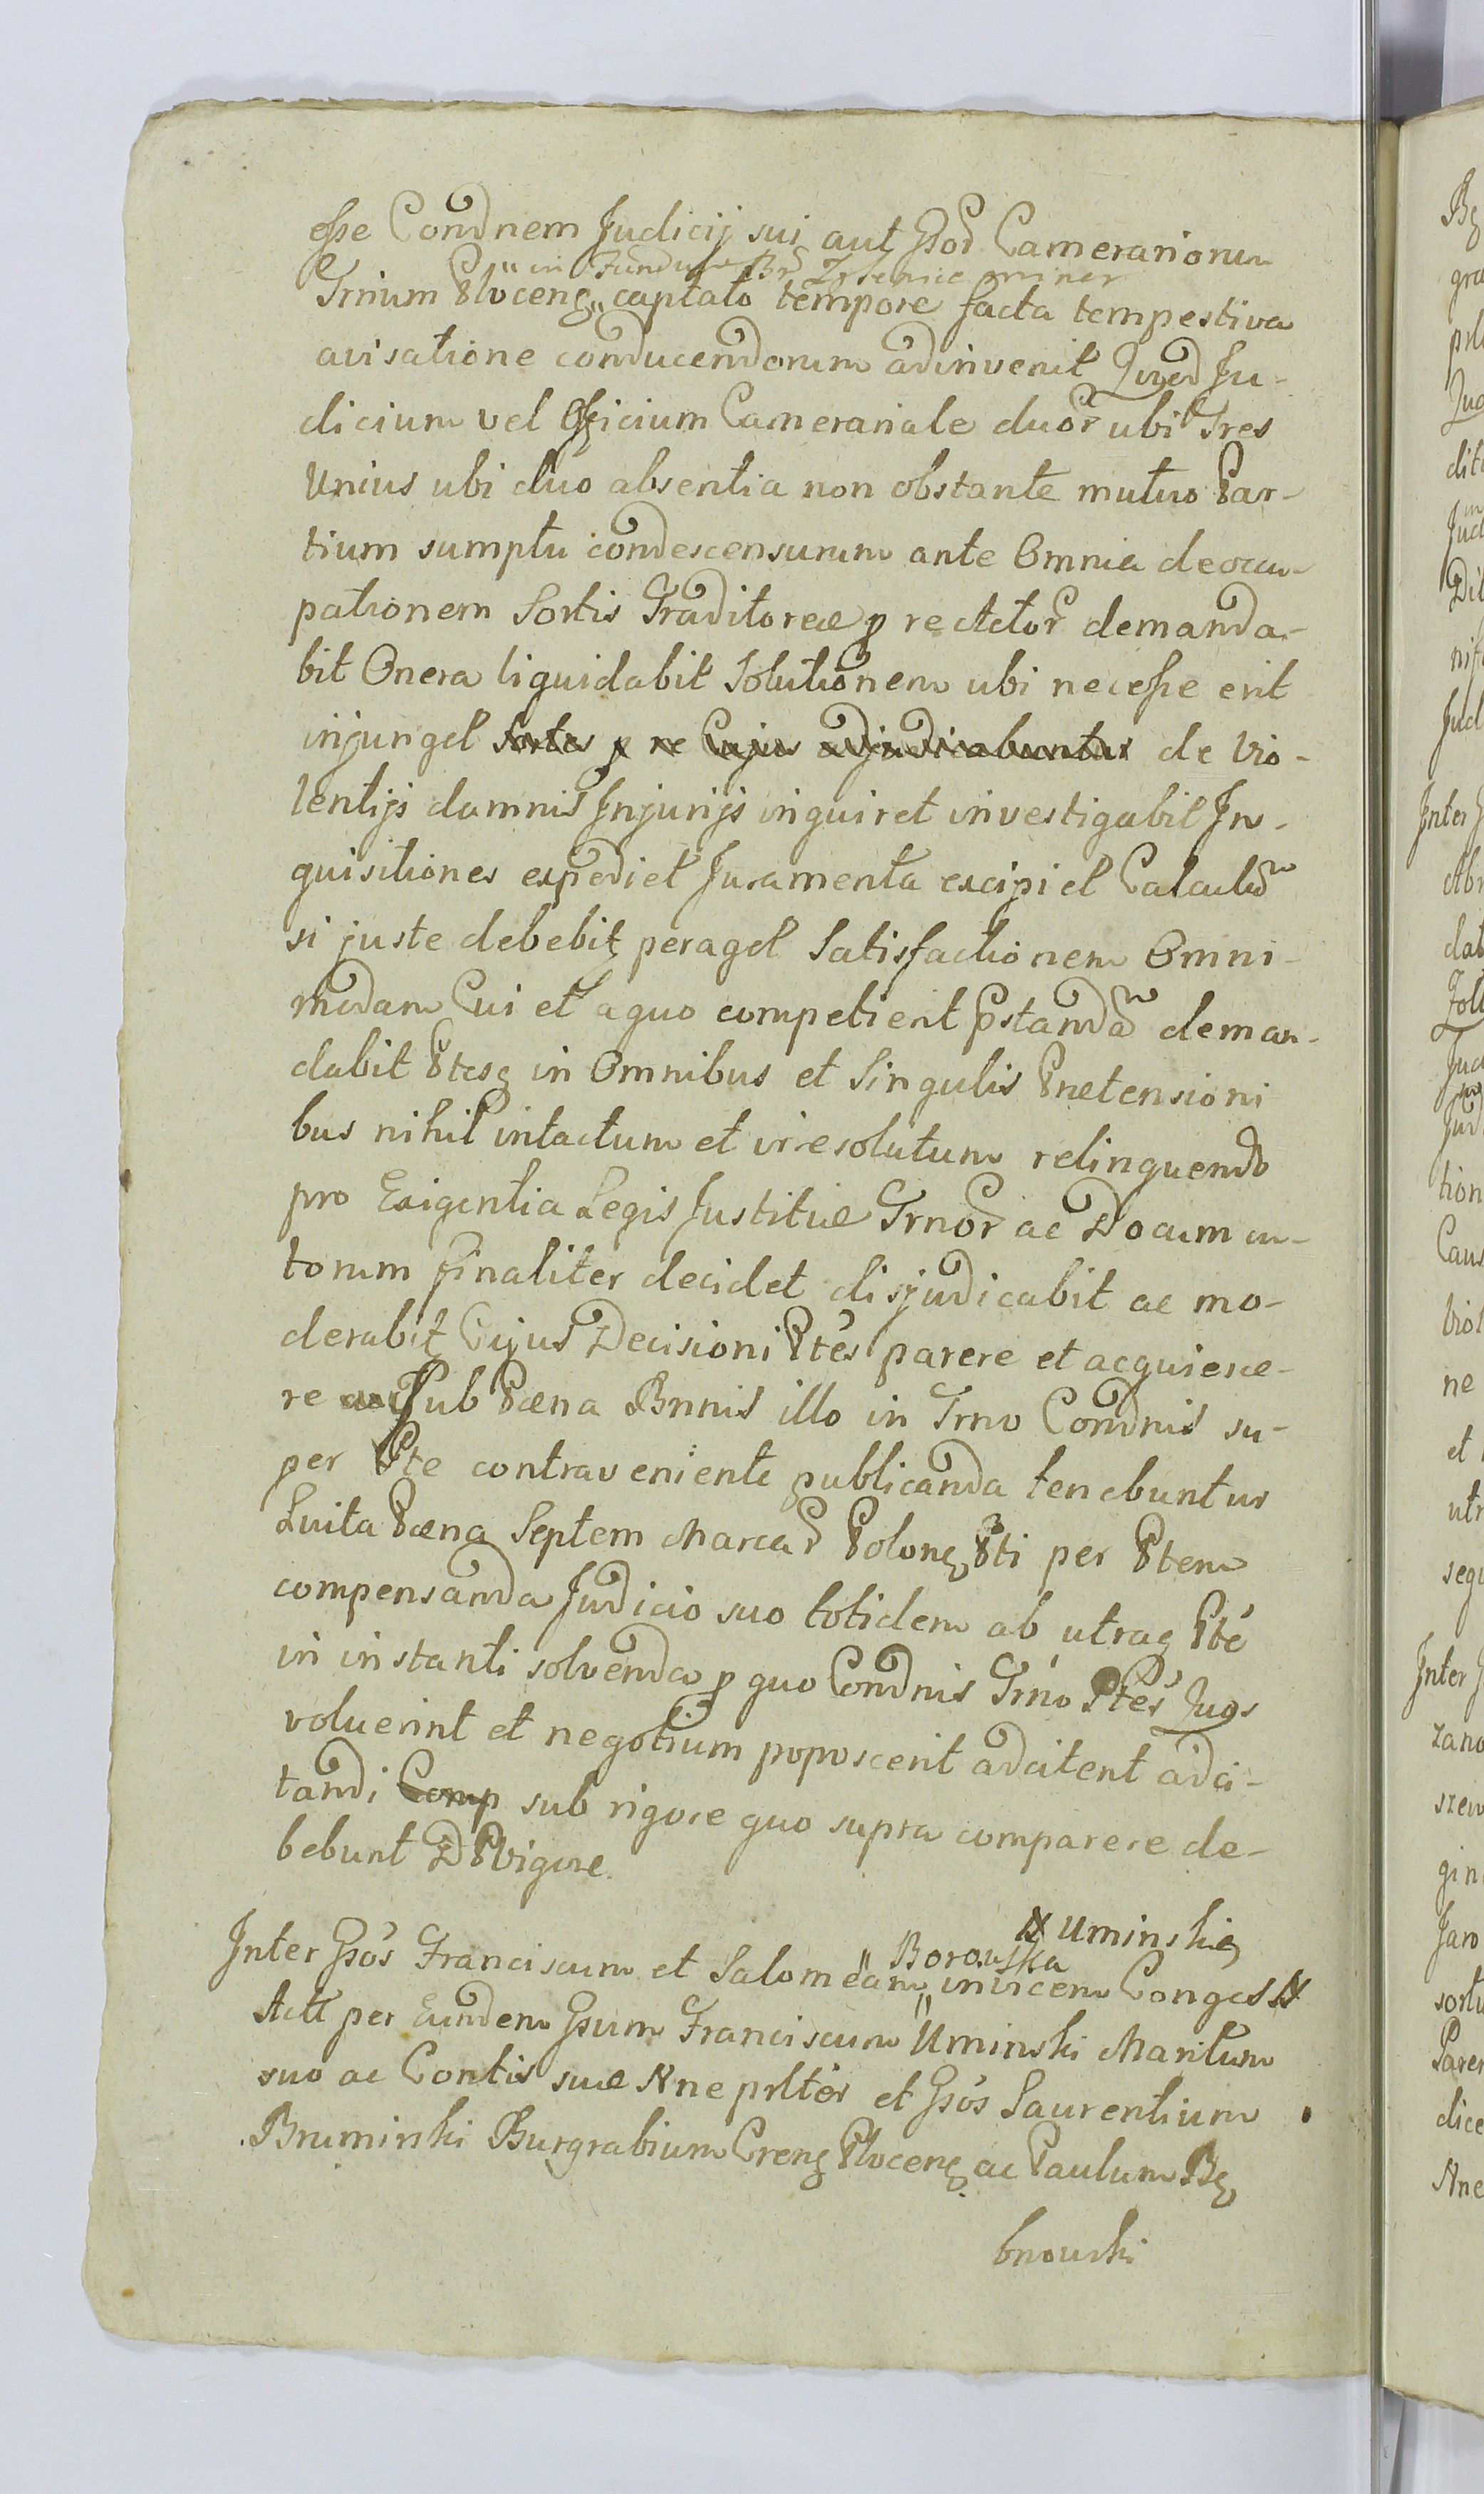 esse Condnem Judicij sui aut Gsor Camerariorum
" in Fundum Br minor
Trium Plocen " captato tempore facta tempestiva
avisatione conducendorum adinvenit Quod Ju-
dicium vel Officium Camerariale duor ubi Tres
Unius ubi duo absentia non obstante mutuo Par-
tium sumptu condescensurum ante Omnia deoccu-
pationem Sortis Traditoreae p demanda-
bit Onera liquidabit Solutionem ubi necesse erit
injunget Sortes p re Cujus adjudicabuntur de Vio-
lentijs damnis Injurijs inquiret investigabit In-
quisitiones expediet Juramenta excipiet Calculum
si juste debebit peraget Satisfactionem Omni-
modam Cui et a quo competierit pstandam deman-
dabit Ptesq in Omnibus et Singulis Praetensioni
bus nihil intactum et irresolutum relinquendo
pro Exigentia Legis Justitiae Trnor ac Documen-
torum finaliter decidet disjudicabit ac mo-
derabit Cujus Decisioni Ptes parere et acquiesce-
re Sub Paena Bnnis illo in Trno Condnis su-
per Pte contraveniente publicanda tenebuntur
Luita Paena Septem Marcar Polon Pti per Ptem
compensanda Judicio suo totidem ab utraq Pte
in instanti solvenda p quo Condnis Trno Ptes Quos
voluerint et negotium poposcerit adcitent adci-
tandi Comp sub rigore quo supra comparere de-
bebunt D P vigore.
N Uminskie
Borowska
Inter Gsos Franciscum et Salomeam " invicem Conges N
Act per Eundem Gsum Franciscum Uminski Maritum
suo ac Contis suae Nne prlter et Gsos Laurentium
Bruminski Burgrabium Cren Plocen ac Paulum Bę
bnowski